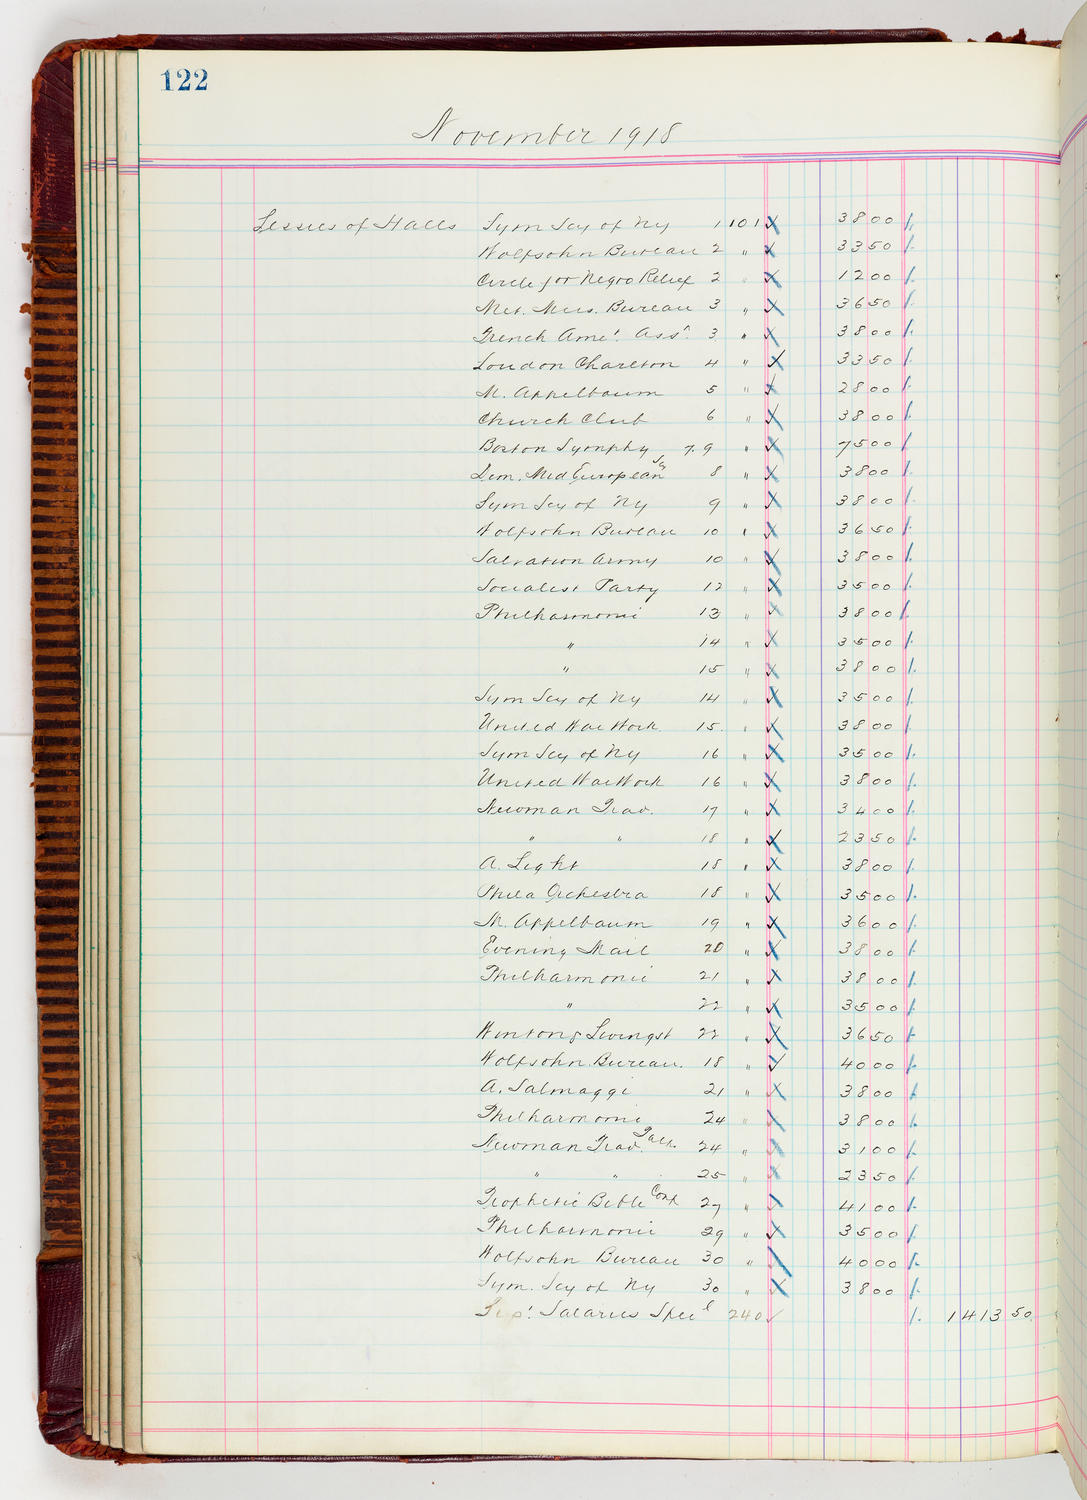 122
November 1918
Lessees of Halls Sym Scy of Ny 1 101 38 00
Wolfsohn Bureau 2 " 33 50
Circle for Negro Relief 2 " 12 00
Met. Mus. Bureau 3 " 36 50
French Amer. Assn. 3 " 38 00
Loudon Charlton 4 " 33 50
M. Appelbaum 5 " 28 00
Church Club 6 " 38 00
Boston Symphy 7.9 " 75 00
Dem. Mid European 8 " 38 00
Sym Scy of Ny 9 " 38 00
Wolfsohn Bureau 10 " 36 50
Salvation Army 10 " 38 00
Socialist Party 12 " 35 00
Philharmonic 13 " 38 00
" 14 " 35 00
" 15 " 38 00
Sym Scy of Ny 14 " 35 00
United War Work 15. " 38 00
Sym Scy of Ny 16 " 35 00
United War Work 16 " 38 00
Newman Trav. 17 " 34 00
" " 18 " 23 50
A. Light 18 " 38 00
Phila Orchestra 18 " 35 00
M. Appelbaum 19 " 36 00
Evening Mail 20 " 38 00
Philharmonic 21 " 38 00
" 22 " 35 00
Winton & Livingst 22 " 36 50
Wolfsohn Bureau. 18 " 40 00
A. Salmaggi 21 " 38 00
Philharmonic 24 " 38 00
Newman Trav. Talk 24 " 31 00
" " 25 " 23 50
Prophetic Bible Conf 27 " 41 00
Philharmonic 29 " 35 00
Wolfsohn Bureau 30 " 40 00
Sym. Scy of Ny 30 " 38 00
Salaries Specl 240 ✓ 1413 50